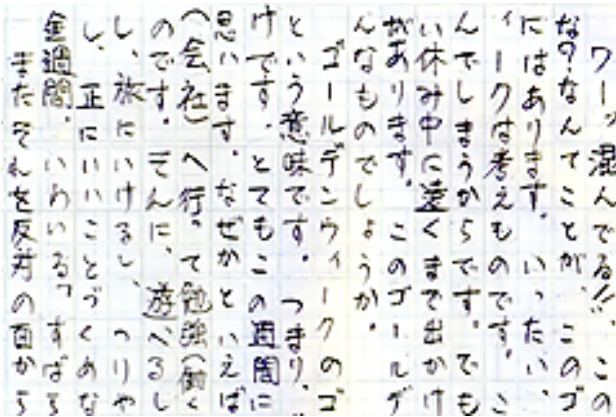 ワーッ混んでる!!、この
な?なんてことが、このゴ
にはあります。いったい、
ィークは考えものです。こ
んでしまうからです。でも
い休み中に遠くまで出かけ
があります。このゴールデ
んなものでしょうか。
ゴールデンウィークのゴ
という意味です。つまり、
けです。とてもこの週間に
思います。なぜかといえば
(会社)へ行って勉強(働く
のです。そんに、遊べるし
し、旅にいけるし、つりや
し、正にいいことづくめな
金週間。いわいる「すばら
またそんを反対の面から